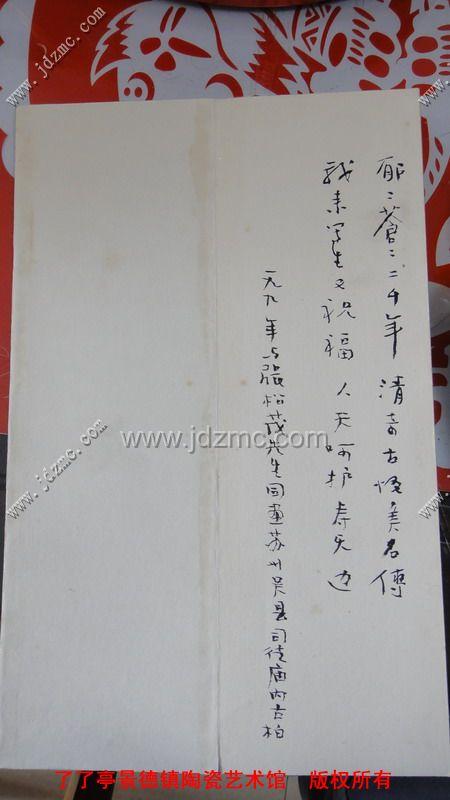 www.jdzmc.com
www.jdzmc.com
郁々蒼々二千年 清奇古怪美名傳
我来写生又祝福 人天呵护寿无边
年与張松茂先生同畫苏州吴县司徒庙内古柏
www.jdzmc.com
www.jdzmc.com
www.jdzmc.com
www.jdzmc.com
www.jdzmc.com
了了亭景德镇陶瓷艺术馆 版权所有